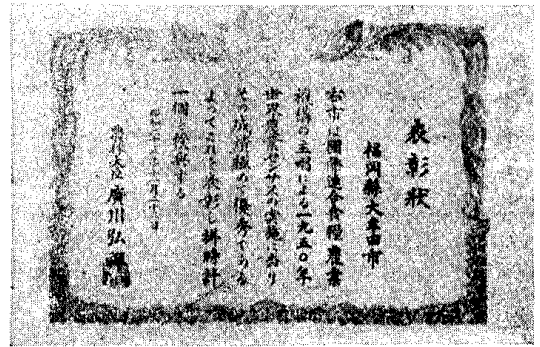 表彰状
福岡縣大牟田市
右市は國際連合食糧農業
機構の主唱による一九五〇年
世界農業センサスの実施に当り
その成績極めて優秀である
よってこれを表彰し掛時計
一個を授與する
昭和二十
農林大臣 廣川弘禪